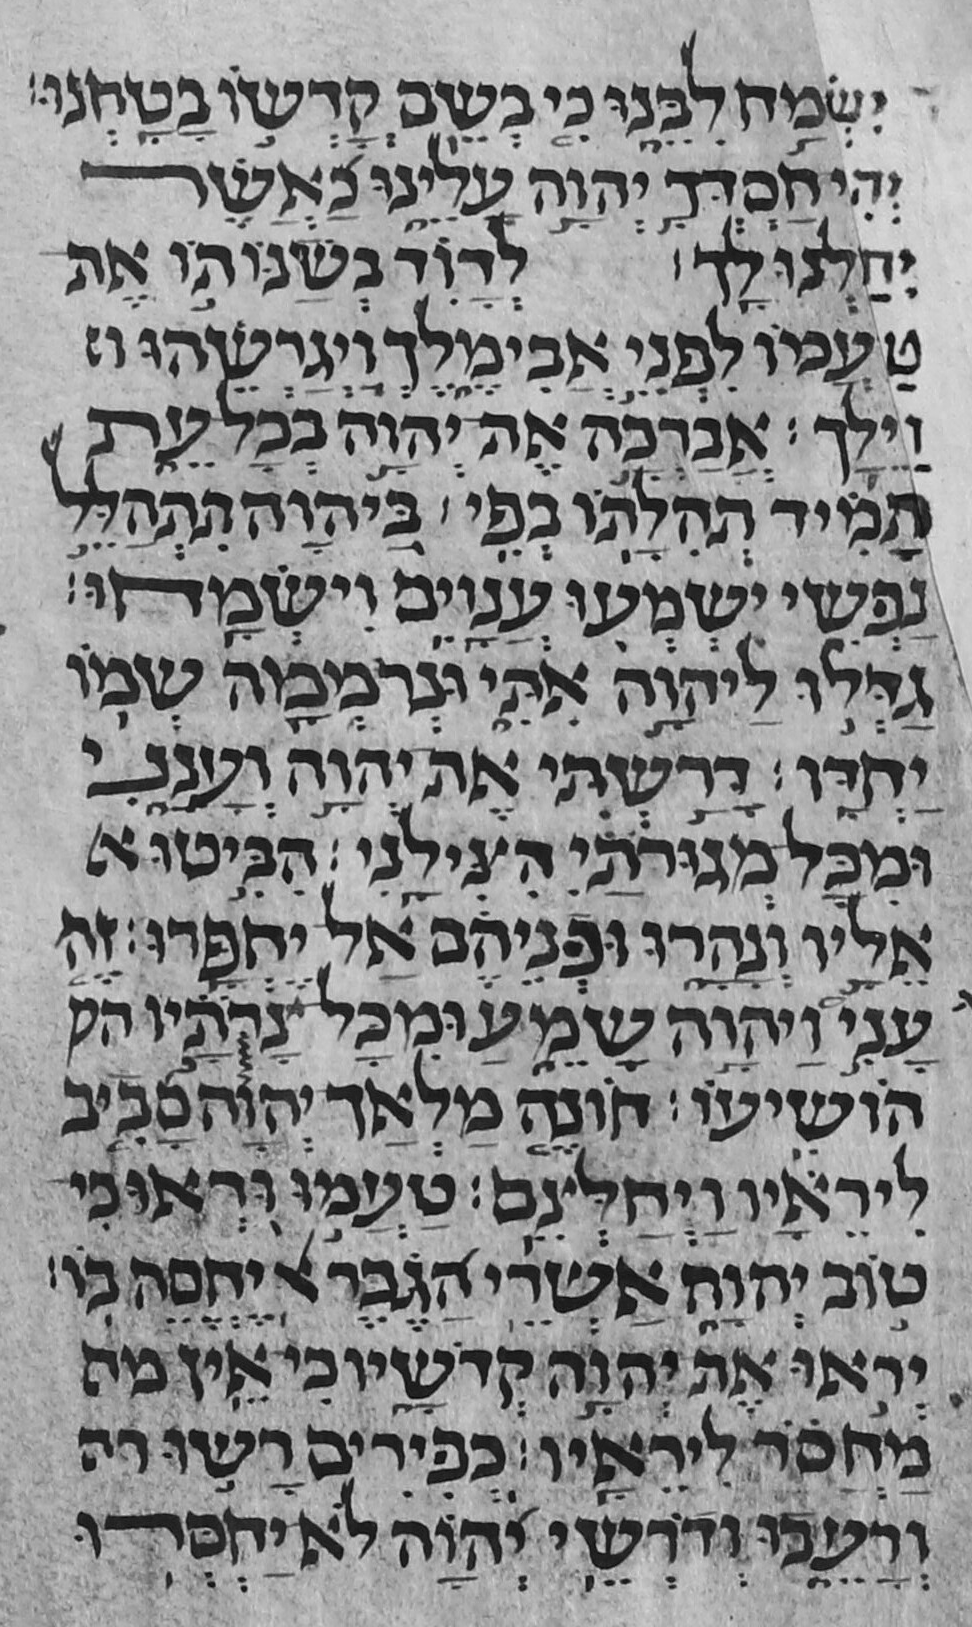 יִשְׂמַח לִבֵּנוּ כִּי בְשֵׁם קָדְשׁוֹ בָטָחְנוּ׃
יְהִי חַסְדְּךָ יְהוָה עָלֵינוּ כַּאֲשֶׁר
יִחַלְנוּ לָךְ׃ לְדָוִד בְּשַׁנּוֹתוֹ אֶת
טַעְמוֹ לִפְנֵי אֲבִימֶלֶךְ וַיְגָרְשֵׁהוּ וי
וַיֵּלַךְ׃ אֲבָרְכָה אֶת יְהוָה בְּכָל עֵת
תָּמִיד תְּהִלָּתוֹ בְּפִי׃ בַּיהוָה תִּתְהַלֵּל
נַפְשִׁי יִשְׁמְעוּ עֲנָוִים וְיִשְׂמָחוּ׃
גַּדְּלוּ לַיהוָה אִתִּי וּנְרֹמְמָה שְׁמוֹ
יַחְדָּו׃ דָּרַשְׁתִּי אֶת יְהוָה וְעָנָנִי
וּמִכָּל מְגוּרֹתַי הִצִּילָנִי׃ הִבִּיטוּ א
אֵלָיו וְנָהָרוּ וּפְנֵיהֶם אַל יֶחְפָּרוּ׃ זֶה
עָנִי וַיהוָה שָׁמֵעַ וּמִכָּל צָרֹתָיו הו
הוֹשִׁיעוֹ׃ חוֹנֶה מַלְאַךְ יְהוָה סָבִיב
לִירֵאָיו וַיְחַלְּצֵם׃ טַעֲמוּ וּרְאוּ כִּי
טוֹב יְהוָה אַשְׁרֵי הַגֶּבֶר יֶחֱסֶה בּוֹ׃
יְראוּ אֶת יְהוָה קְדֹשָׁיו כִּי אֵין מח
מַחְסוֹר לִירֵאָיו׃ כְּפִירִים רָשׁוּ ור
וְרָעֵבוּ וְדֹרְשֵׁי יְהוָה לֹא יַחְסְרוּ